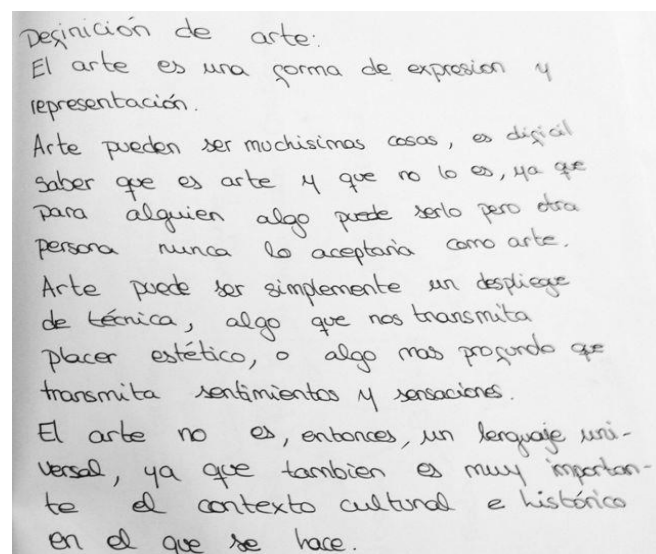 Definición de arte:
El arte es una forma de expresion y
representación.
Arte pueden ser muchisimas cosas, es dificil
saber que es arte y que no lo es, ya que
para alguien algo puede serlo pero otra
persona nunca lo aceptaria como arte.
Arte puede ser simplemente un despliege
de técnica, algo que nos transmita
placer estético, o algo mas profundo que
transmita sentimientos y sensaciones.
El arte no es, entonces, un lenguaje uni-
versal, ya que tambien es muy importan-
te el contexto cultural e histórico
en el que se hace.